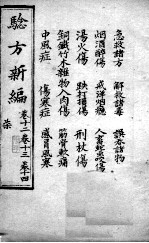 驗方新編
卷十二卷十三卷十四
柒
急救諸方
解救諸毒
誤吞諸物
烟酒醉傷
戒洋烟癮
人畜蛇蟲傷
湯火傷
跌打損傷
刑杖傷
銅鐵竹木雜物入肉傷
筋骨軟痛
中風症
傷寒症
感冒風寒